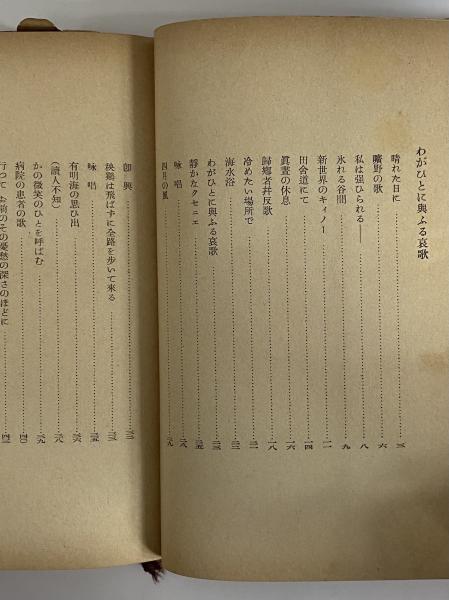 わがひとに與ふる哀歌
晴れた日に……三
曠野の歌……六
私は强ひられる——……八
氷れる谷間……九
新世界のキィノー……一一
田舍道にて……一四
眞晝の休息……一六
歸郷者幷反歌……一八
冷めたい場所で……二一
海水浴……二三
わがひとに與ふる哀歌
靜かなクセニエ……二五
咏唱……二八
四月の風……二九
卽興
秧鷄は飛ばずに全路を步いて來る
咏唱
有明海の思ひ出
(讀人不知)
かの微笑のひとを呼ばむ
病院の患者の歌
行つて お前のその憂愁の深さのほどに